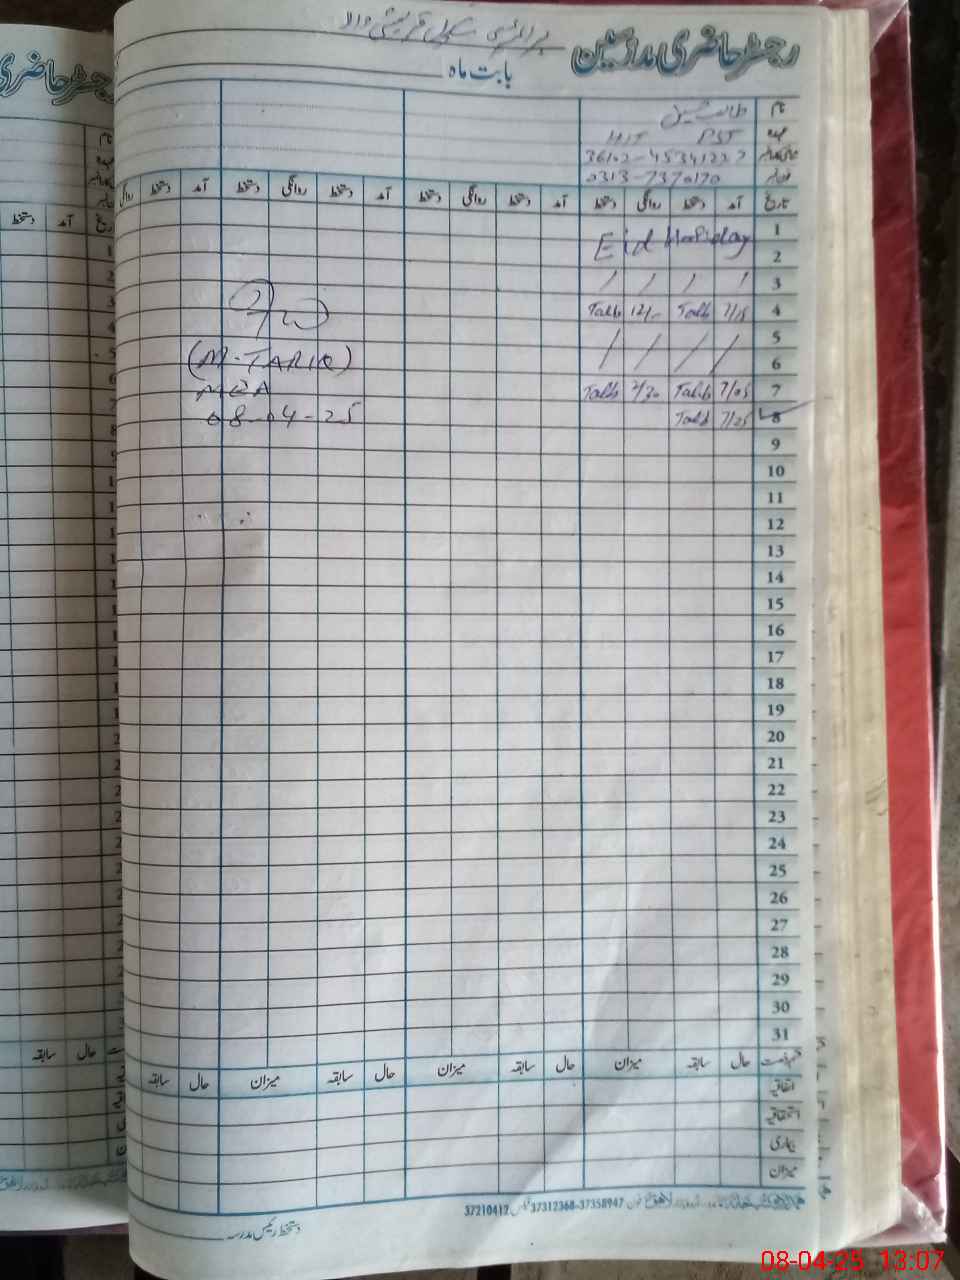 رجسٹر حاضری ملازمین
پرائمری سکول قریشی والا
بابت ماہ
نام طالب حسین
عہدہ PST
36102-4534122
فون نمبر 0313-7370170
تاریخ آمد دستخط روانگی دستخط آمد دستخط روانگی دستخط آمد دستخط روانگی دستخط آمد دستخط روانگی
1
Eid Holiday
2
3 / / / /
4 7/15 Talib 12/- Talib
5
6 / / / /
7 7/05 Talib 2/30 Talib
8 7/25 Talib
(M-TARIQ)
MEA
08-04-25
9
10
11
12
13
14
15
16
17
18
19
20
21
22
23
24
25
26
27
28
29
30
31
حال سابقہ میزان حال سابقہ میزان حال سابقہ میزان حال سابقہ
اتفاقیہ
استحقاقیہ
بیماری
میزان
فون 37358947-37312368 فیکس 37210412
دستخط رئیس مدرسہ
رجسٹر حاضری
نام
عہدہ
تاریخ آمد دستخط
حال سابقہ
08-04-25 13:07